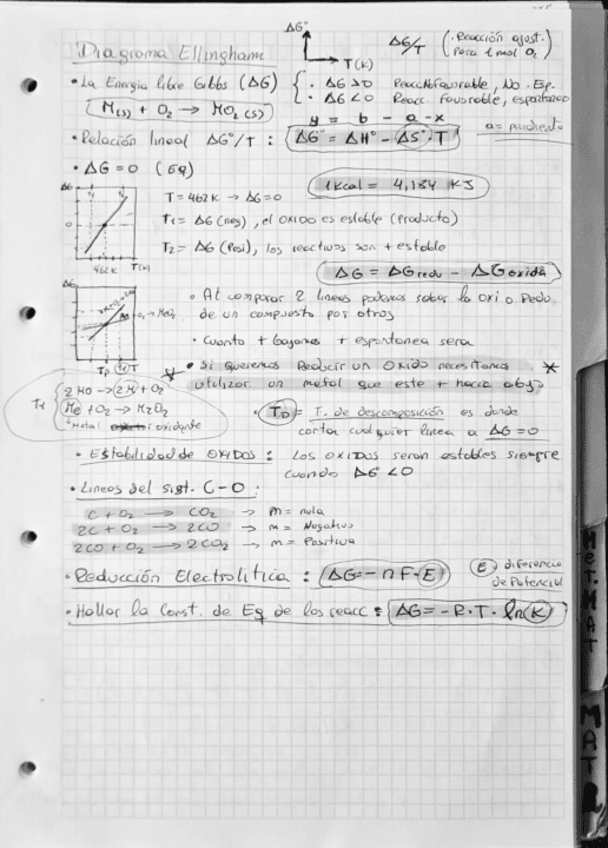 ΔG°
T(K)
ΔG/T (·Reacción ajust. para 1 mol O₂)
Diagrama Ellingham
• La Energia libre Gibbs (ΔG) { · ΔG>0 Reacc Nofavorable, No Esp.
· ΔG<0 Reacc. Favorable, espontaneo
M(s) + O₂ → MO₂(s)
y = b - a · x
• Relación lineal ΔG°/T : ΔG° = ΔH° - ΔS°·T
a = pendiente
• ΔG = 0 (Eq)
1Kcal = 4,184 KJ
ΔG
0
462K T(K)
T = 462K → ΔG=0
T₁ = ΔG (neg), el oxido es estable (producto)
T₂ = ΔG (Posi), los reactivos son + estable
ΔG = ΔGredu - ΔGoxida
ΔG
• Al comparar 2 lineas podemos saber la oxi o Redo
de un compuesto por otros
• Cuanto + bajamos + espontanea sera
• Si queremos Reducir un oxido necesitamos
utilizar un metal que este + hacia abajo
2MO → 2M + O₂
Me + O₂ → M₂O₂
↓ Metal oxidante
• TD = T. de descomposición es donde
corta cualquier linea a ΔG=0
• Estabilidad de oxidos : Los oxidos seran estables siempre
cuando ΔG° < 0
• Lineas del sist. C-O :
C + O₂ → CO₂ → m = nula
2C + O₂ → 2CO → m = Negativa
2CO + O₂ → 2CO₂ → m = Positiva
• Reducción Electrolitica : ΔG=-nF·E
E: diferencia de Potencial
• Hallar la Const. de Eq de las reacc : ΔG=-R·T·ln K
Met. MAT
MAT